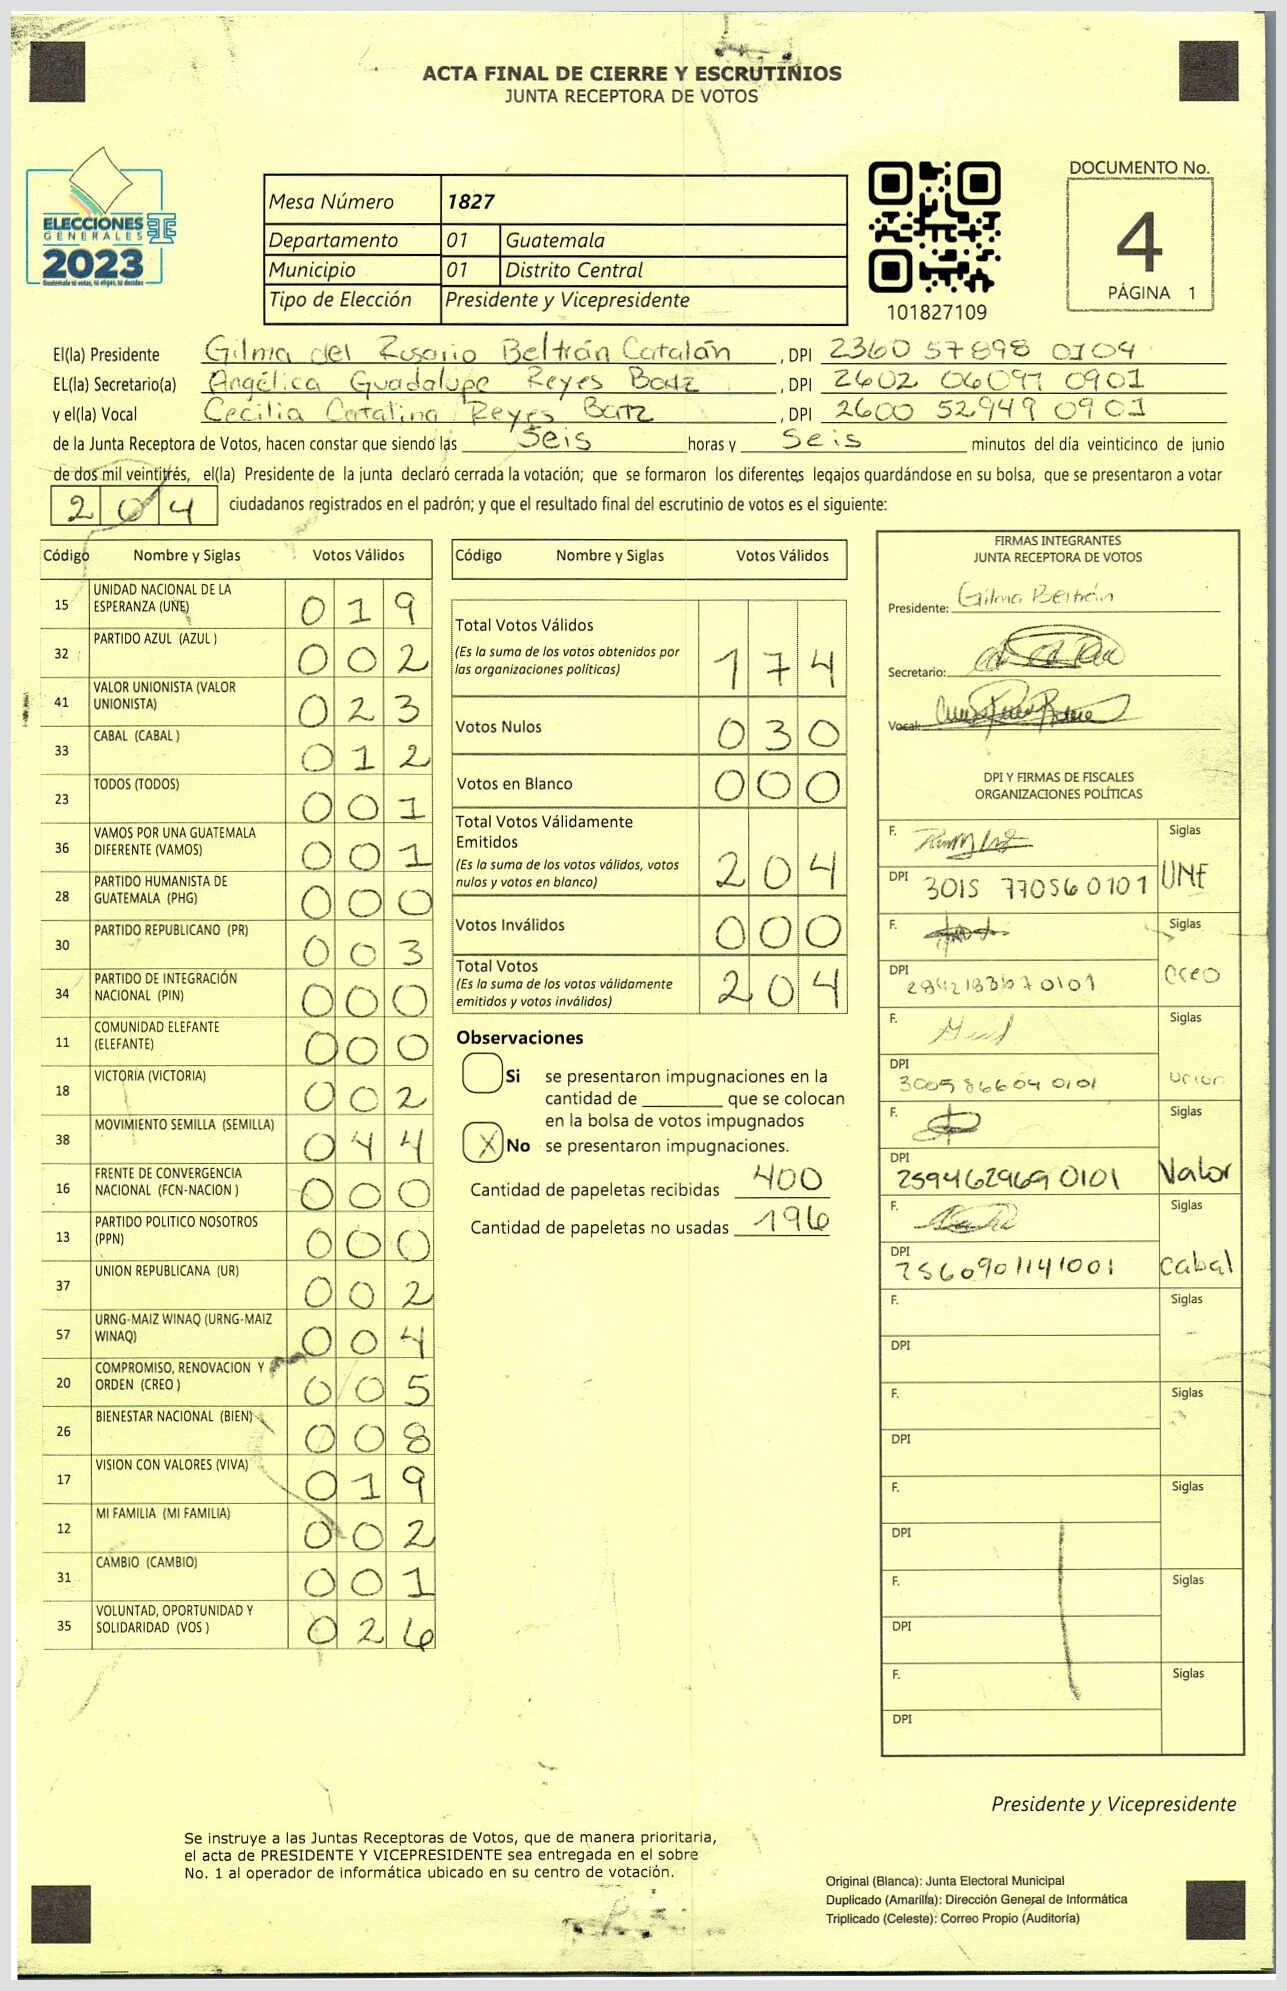 ACTA FINAL DE CIERRE Y ESCRUTINIOS
JUNTA RECEPTORA DE VOTOS
ELECCIONES
GENERALES
2023
Guatemala tú votas, tú eliges, tú decides
Mesa Número 1827
Departamento 01 Guatemala
Municipio 01 Distrito Central
Tipo de Elección Presidente y Vicepresidente
101827109
DOCUMENTO No.
4
PÁGINA 1
El(la) Presidente Gilma del Rosario Beltrán Catalán , DPI 2360 57898 0104
EL(la) Secretario(a) Angélica Guadalupe Reyes Batz , DPI 2602 06097 0901
y el(la) Vocal Cecilia Catalina Reyes Batz , DPI 2600 52949 0901
de la Junta Receptora de Votos, hacen constar que siendo las Seis horas y Seis minutos del día veinticinco de junio
de dos mil veintitrés, el(la) Presidente de la junta declaró cerrada la votación; que se formaron los diferentes legajos guardándose en su bolsa, que se presentaron a votar
204 ciudadanos registrados en el padrón; y que el resultado final del escrutinio de votos es el siguiente:
Código Nombre y Siglas Votos Válidos
15 UNIDAD NACIONAL DE LA ESPERANZA (UNE) 019
32 PARTIDO AZUL (AZUL ) 002
41 VALOR UNIONISTA (VALOR UNIONISTA) 023
33 CABAL (CABAL ) 012
23 TODOS (TODOS) 001
36 VAMOS POR UNA GUATEMALA DIFERENTE (VAMOS) 001
28 PARTIDO HUMANISTA DE GUATEMALA (PHG) 000
30 PARTIDO REPUBLICANO (PR) 003
34 PARTIDO DE INTEGRACIÓN NACIONAL (PIN) 000
11 COMUNIDAD ELEFANTE (ELEFANTE) 000
18 VICTORIA (VICTORIA) 002
38 MOVIMIENTO SEMILLA (SEMILLA) 044
16 FRENTE DE CONVERGENCIA NACIONAL (FCN-NACION ) 000
13 PARTIDO POLITICO NOSOTROS (PPN) 000
37 UNION REPUBLICANA (UR) 002
57 URNG-MAIZ WINAQ (URNG-MAIZ WINAQ) 004
20 COMPROMISO, RENOVACION Y ORDEN (CREO ) 005
26 BIENESTAR NACIONAL (BIEN) 008
17 VISION CON VALORES (VIVA) 019
12 MI FAMILIA (MI FAMILIA) 002
31 CAMBIO (CAMBIO) 001
35 VOLUNTAD, OPORTUNIDAD Y SOLIDARIDAD (VOS ) 026
Código Nombre y Siglas Votos Válidos
Total Votos Válidos 174
(Es la suma de los votos obtenidos por
las organizaciones políticas)
Votos Nulos 030
Votos en Blanco 000
Total Votos Válidamente
Emitidos 204
(Es la suma de los votos válidos, votos
nulos y votos en blanco)
Votos Inválidos 000
Total Votos 204
(Es la suma de los votos válidamente
emitidos y votos inválidos)
Observaciones
Si se presentaron impugnaciones en la
cantidad de ________ que se colocan
en la bolsa de votos impugnados
X No se presentaron impugnaciones.
Cantidad de papeletas recibidas 400
Cantidad de papeletas no usadas 196
FIRMAS INTEGRANTES
JUNTA RECEPTORA DE VOTOS
Presidente: Gilma Beltrán
Secretario:
Vocal:
DPI Y FIRMAS DE FISCALES
ORGANIZACIONES POLÍTICAS
F. Siglas
DPI 3015 77056 0101 UNE
F. Siglas
DPI Creo
F. Siglas
DPI 300586604 0101 Union
F. Siglas
DPI 259462969 0101 Valor
F. Siglas
DPI 2560901141001 Cabal
F. Siglas
DPI
F. Siglas
DPI
F. Siglas
DPI
F. Siglas
DPI
F. Siglas
DPI
Presidente y Vicepresidente
Se instruye a las Juntas Receptoras de Votos, que de manera prioritaria,
el acta de PRESIDENTE Y VICEPRESIDENTE sea entregada en el sobre
No. 1 al operador de informática ubicado en su centro de votación.
Original (Blanca): Junta Electoral Municipal
Duplicado (Amarilla): Dirección General de Informática
Triplicado (Celeste): Correo Propio (Auditoría)